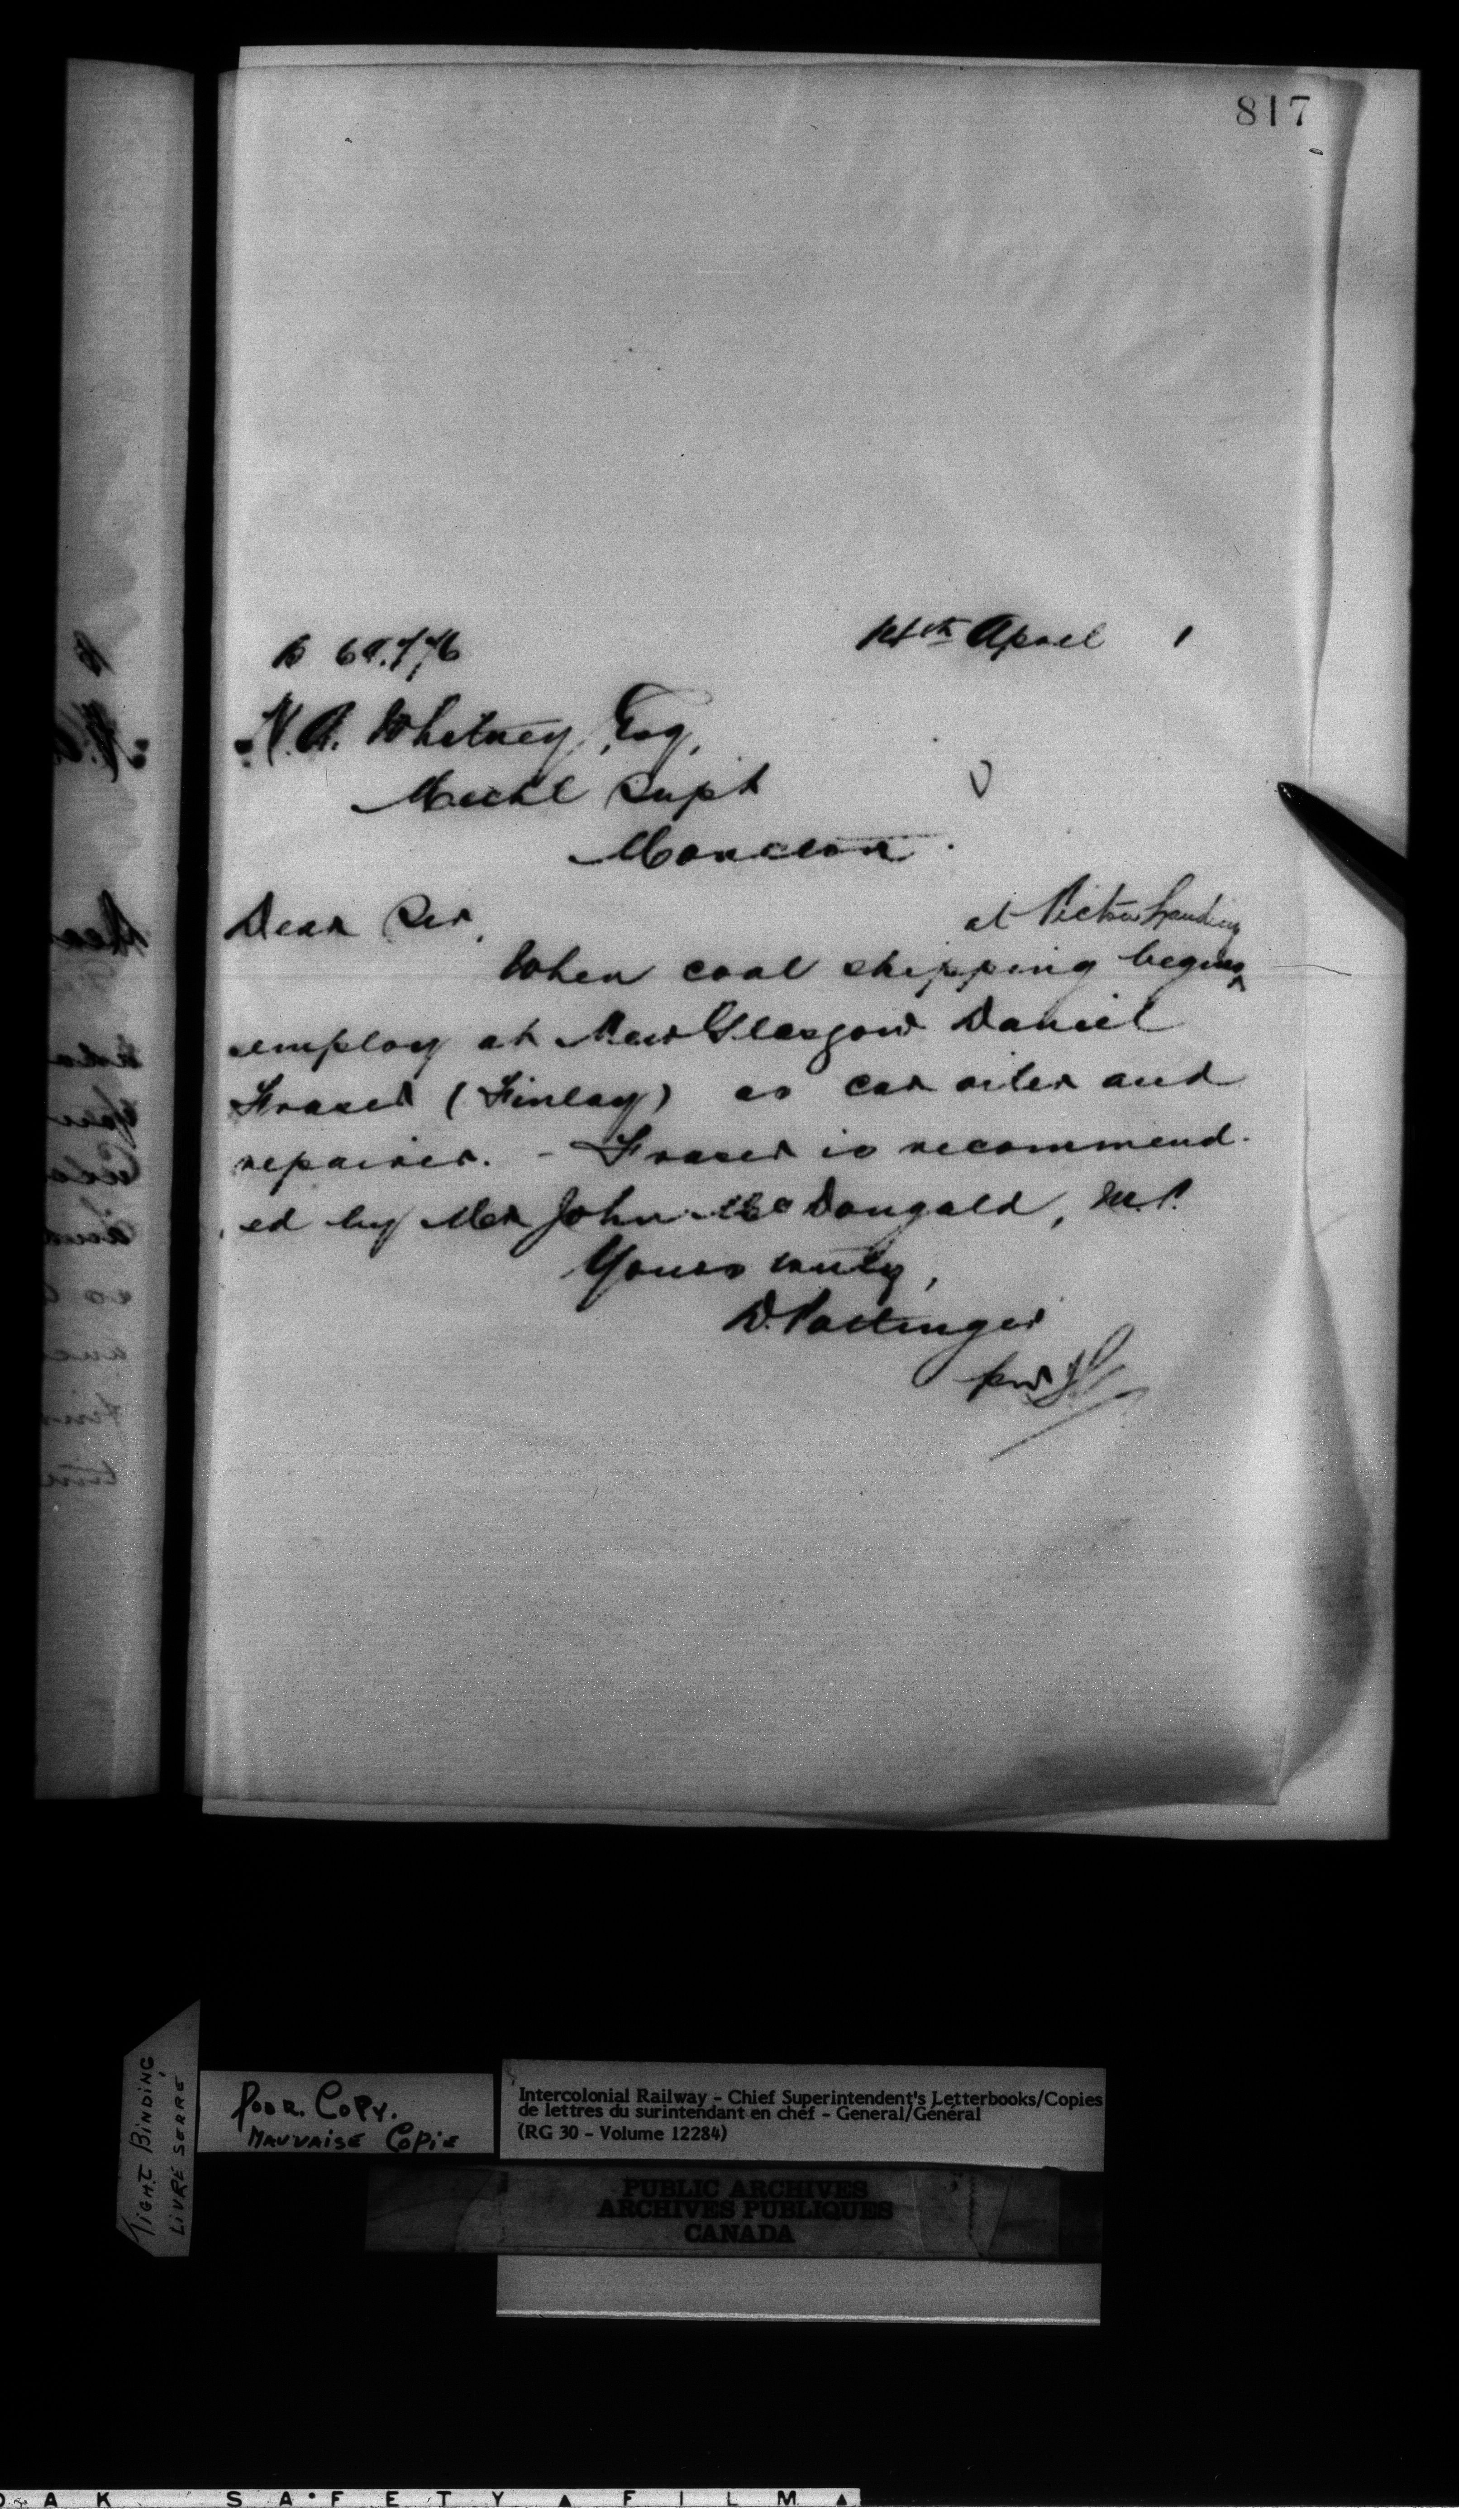 817
14th April 1
H. A. Whitney, Esq,
Mechl Supt
Moncton.
Dear Sir,
at Pictou Landing
When coal shipping begins ^
employ at New Glasgow Daniel
Fraser (Finlay) as car oiler and
repairer. - Fraser is recommend-
ed by Mr John McDougald, M.P.
Yours truly,
D. Pottinger
per
TIGHT BINDING
LIVRE SERRÉ
POOR COPY.
MAUVAISE COPIE
Intercolonial Railway - Chief Superintendent's Letterbooks/Copies
de lettres du surintendant en chef - General/Général
(RG 30 - Volume 12284)
PUBLIC ARCHIVES
ARCHIVES PUBLIQUES
CANADA
DAK SAFETY ▲ FILM ▲